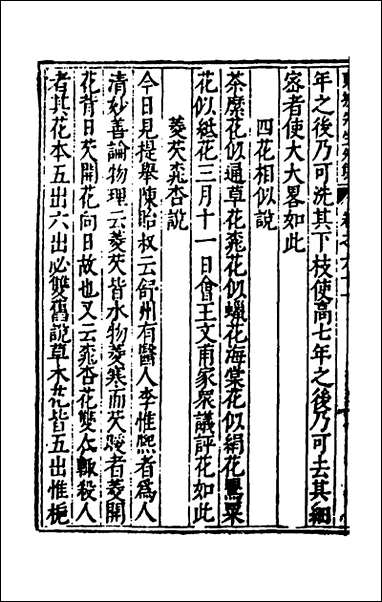 年之後乃可洗其下枝使高七年之後乃可去其細
密者使大大畧如此
四花相似說
荼䕷花似通草花桃花似蠟花海棠花似絹花罌粟
花似紙花三月十一日會王文甫家衆議評花如此
菱芡桃杏說
今日見提舉陳貽叔云舒州有醫人李惟熙者爲人
清妙善論物理云菱芡皆水物菱寒而芡暖者菱開
花背日芡開花向日故也又云桃杏花雙仁輙殺人
者其花本五出六出必雙舊說草木花皆五出惟梔